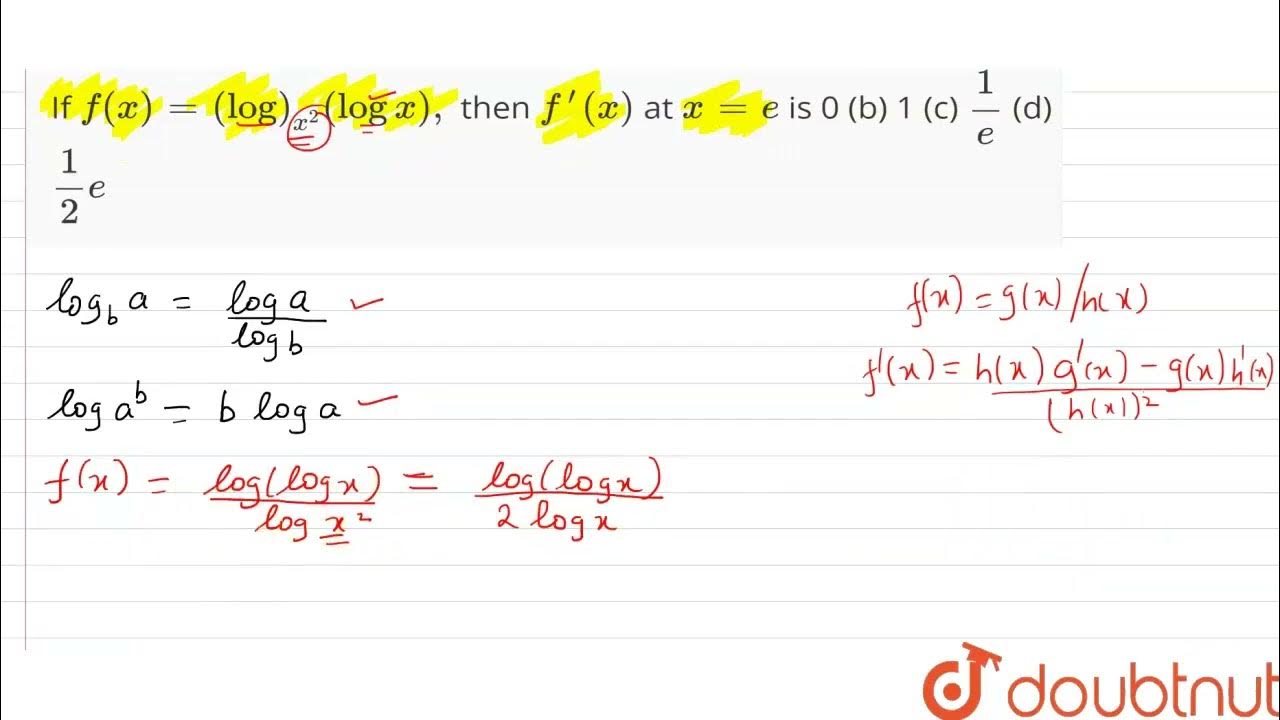 If f(x) = (log)_{x^2}(log x), then f'(x) at x = e is 0 (b) 1 (c) \frac{1}{e} (d)
\frac{1}{2}e
log_b a = \frac{log a}{log b} ✓
f(x) = g(x)/h(x)
f'(x) = \frac{h(x) g'(x) - g(x) h'(x)}{(h(x))^2}
log a^b = b log a ✓
f(x) = \frac{log(log x)}{log x^2} = \frac{log(log x)}{2 log x}
doubtnut